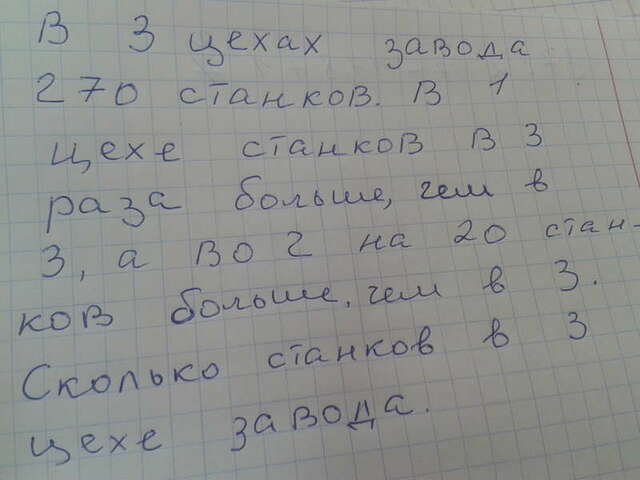 В 3 цехах завода
270 станков. В 1
цехе станков в 3
раза больше, чем в
3, а во 2 на 20 стан-
ков больше, чем в 3.
Сколько станков в 3
цехе завода.